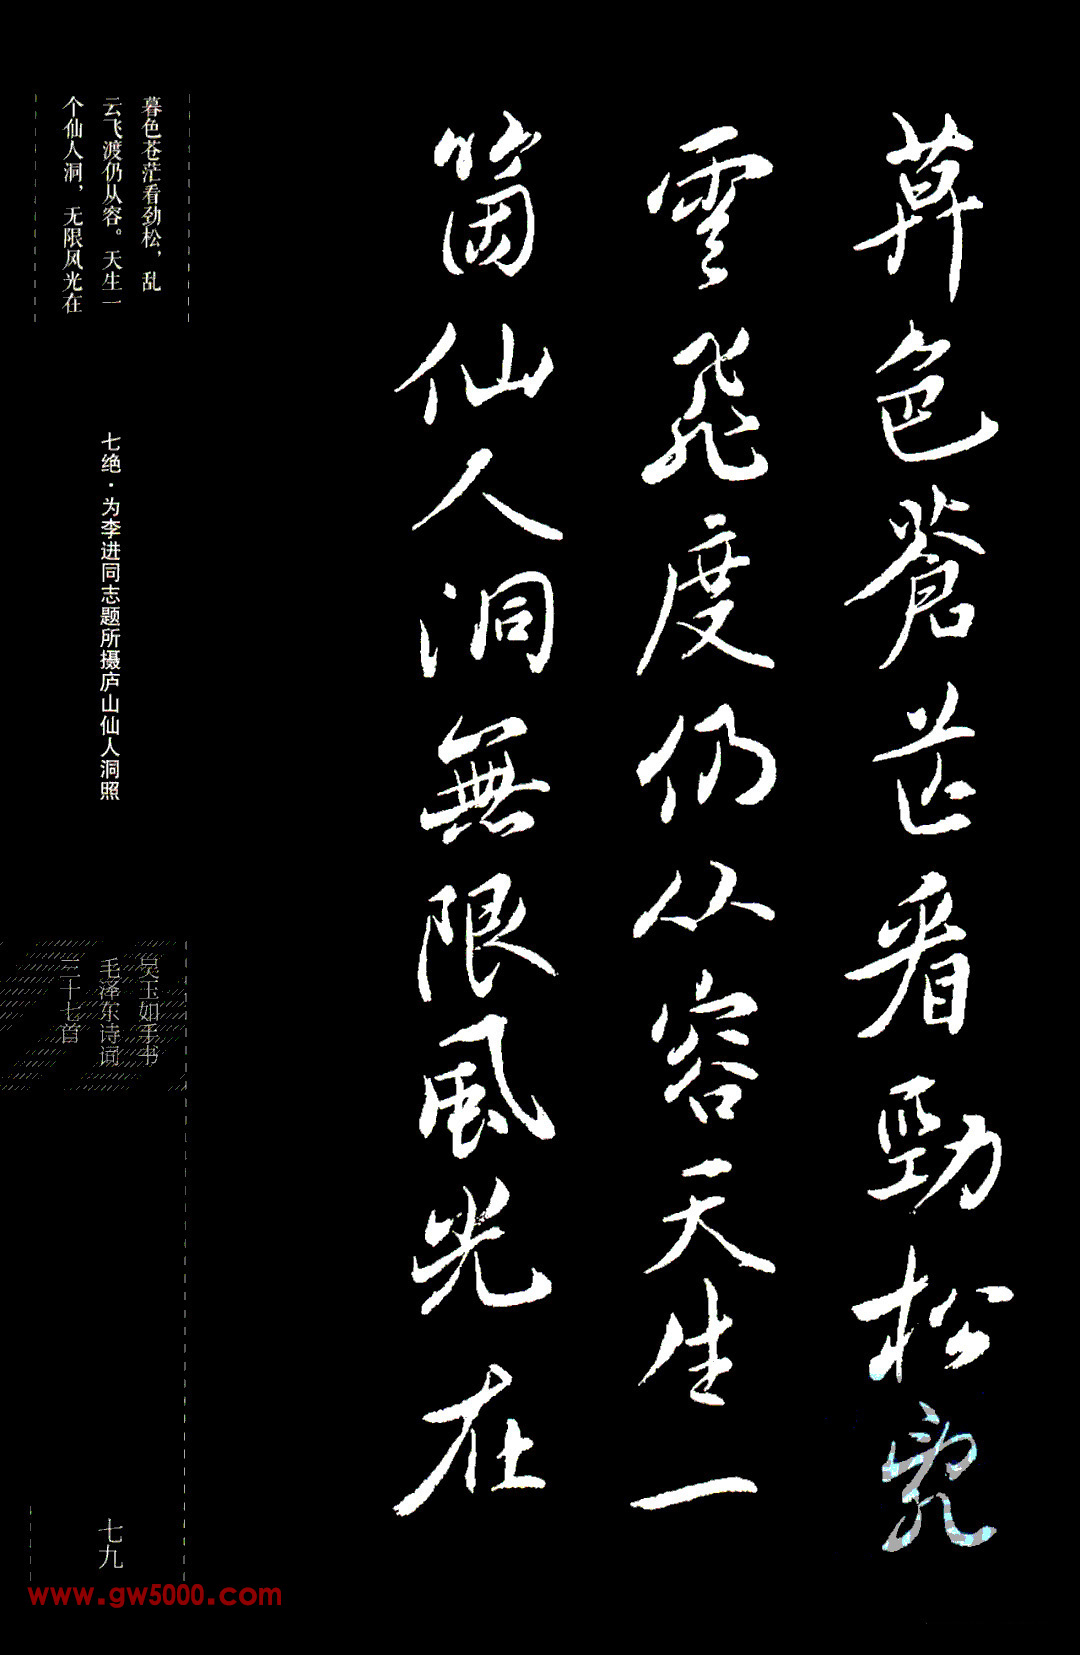 莫色蒼茫看勁松亂
雲飛度仍从容天生一
箇仙人洞無限風光在
暮色苍茫看劲松，乱
云飞渡仍从容。天生一
个仙人洞，无限风光在
七绝·为李进同志题所摄庐山仙人洞照
吴玉如手书
毛泽东诗词
三十七首
七九
www.gw5000.com